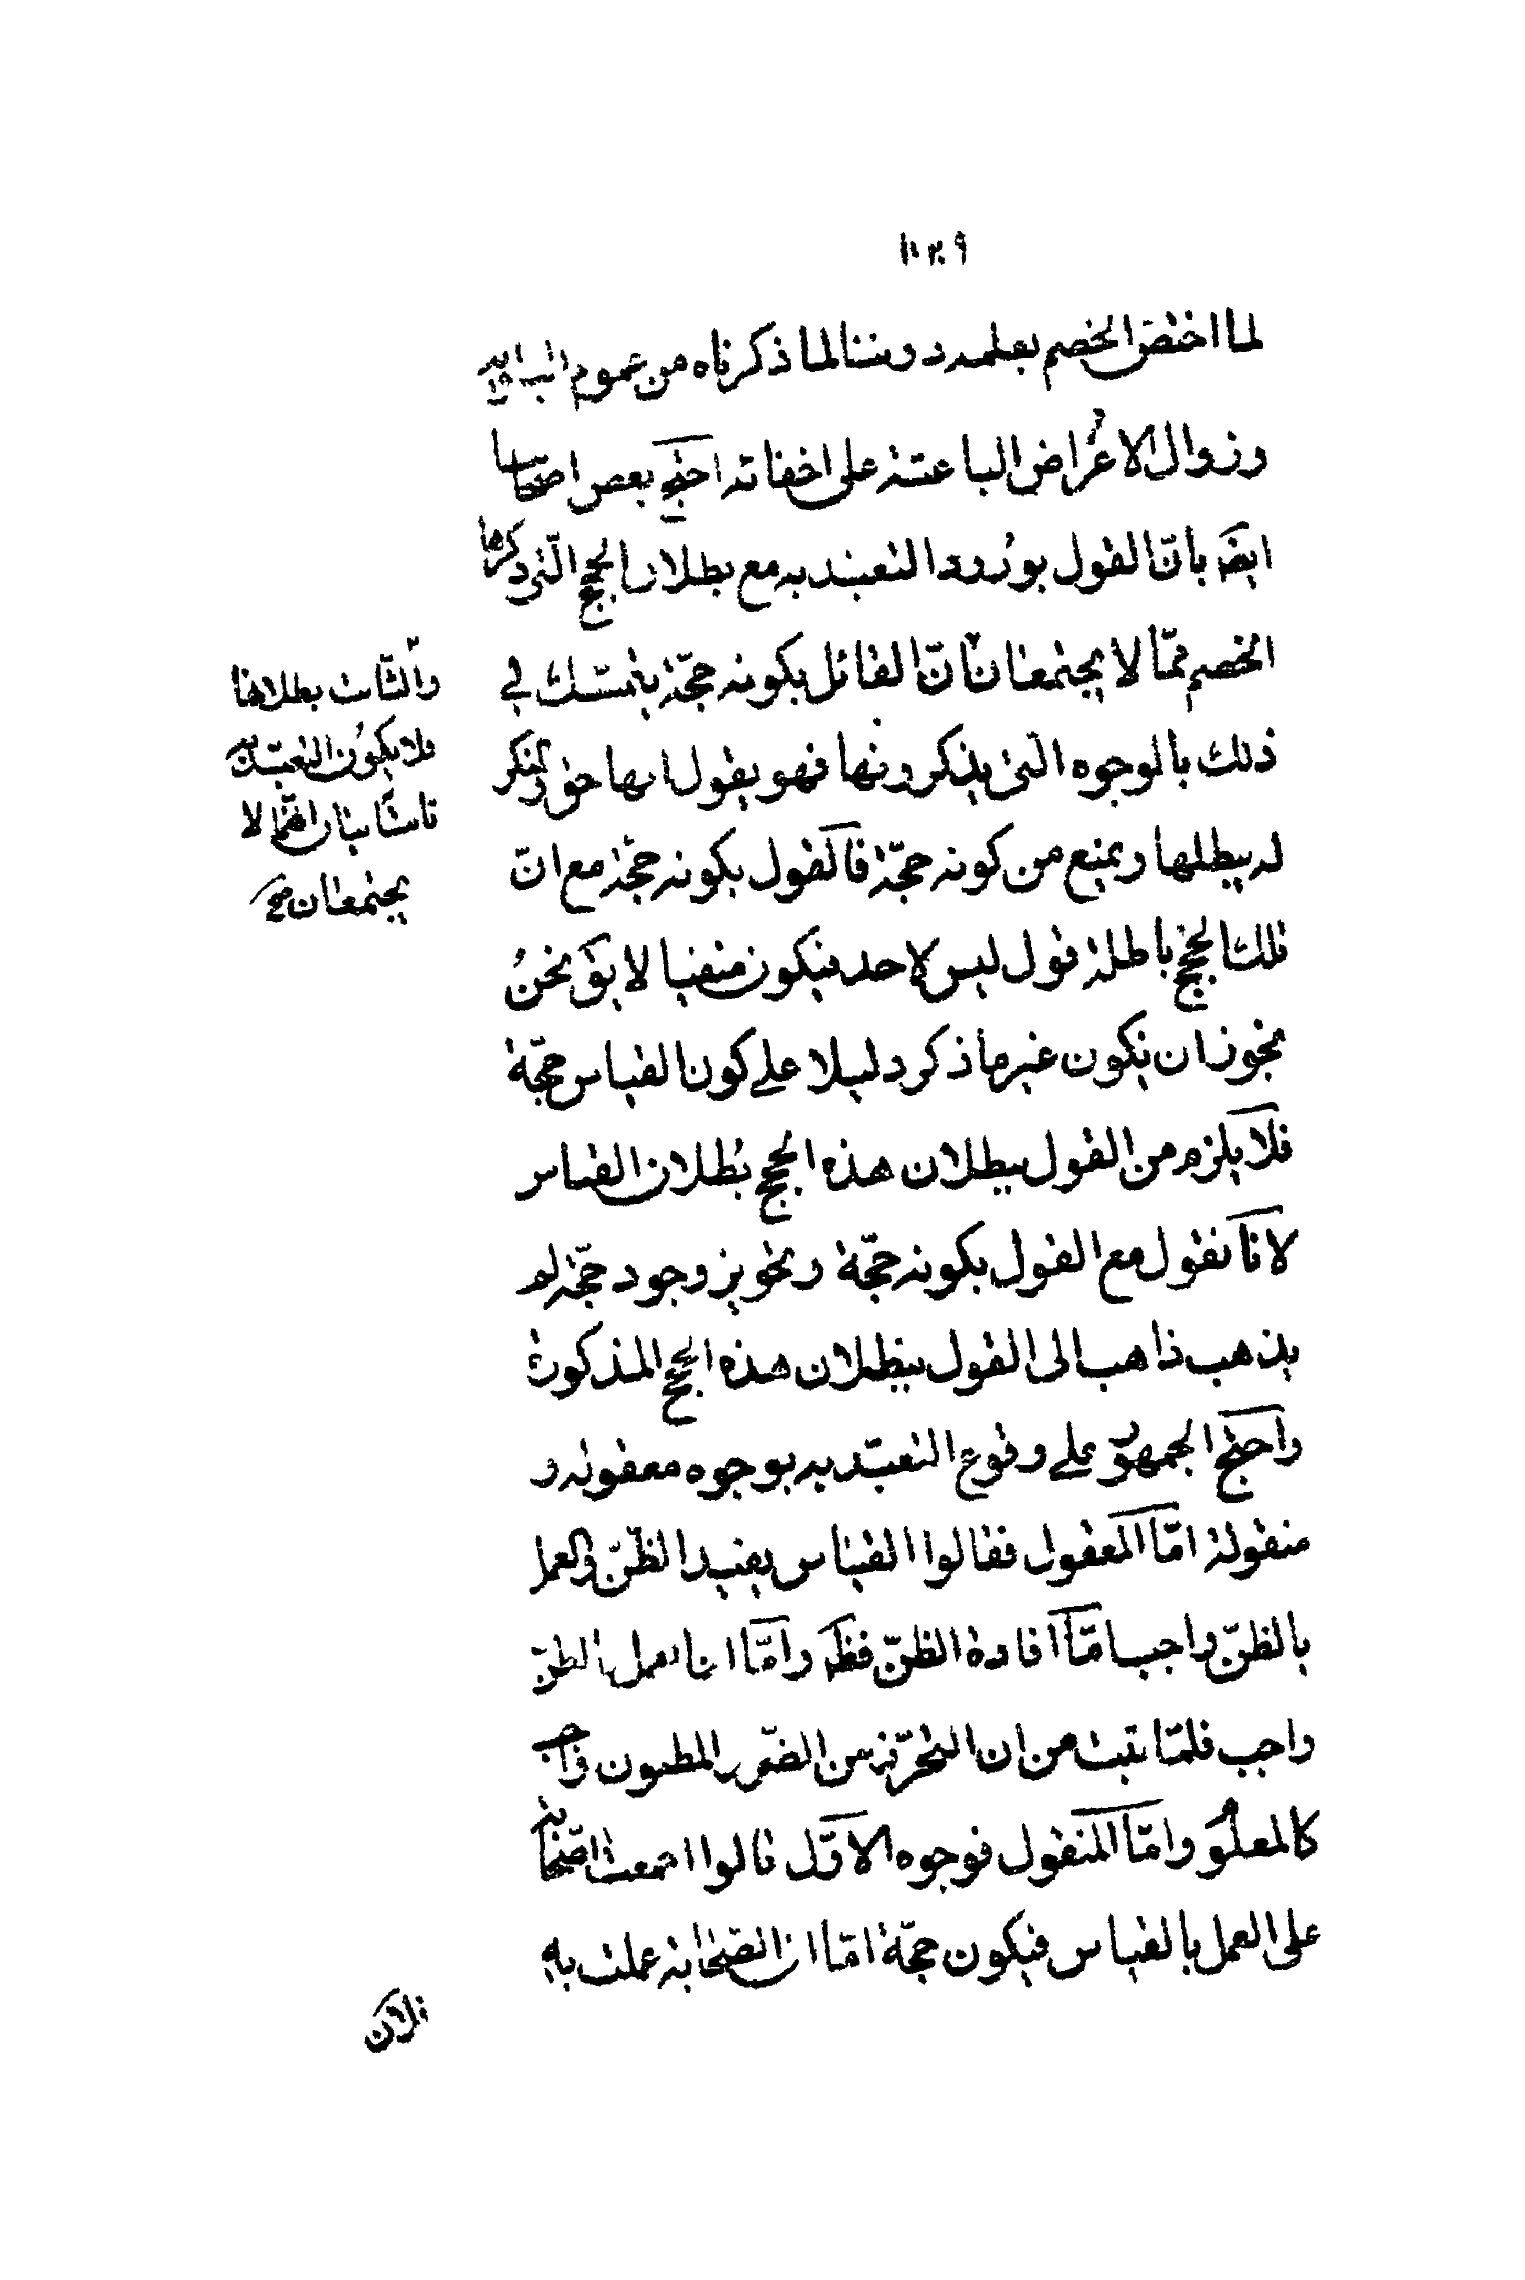 لما اختص الخصم بعلمه دوننا لما ذكرناه من عموم
وزوال الاغراض الباعثة على اخفائه احتج بعض اصحابنا
ايضا بان القول بورود التعبد به مع بطلان الحجج التى ذكرها
الخصم مما لا يجتمعان فان القائل بكونه حجة يتمسك في
ذلك بالوجوه التى يذكرونها فهو يقول انها حق والمنكر
له يبطلها ويمنع من كونه حجة فالقول بكونه حجة مع ان
تلك الحجج باطلة قول ليس لاحد فيكون منفيا لا يق نحن
نجوز ان يكون غير ما ذكر دليلا على كون القياس حجة
فلا يلزم من القول ببطلان هذه الحجج بطلان القياس
لانا نقول مع القول بكونه حجة وتجويز وجود حجة لم
يذهب ذاهب الى القول ببطلان هذه الحجج المذكورة
واحتج الجمهور على وقوع التعبد به بوجوه معقولة و
منقولة اما المعقول فقالوا القياس يفيد الظن والعمل
بالظن واجب اما افادة الظن فظ واما ان العمل بالظن
واجب فلما ثبت من ان التحرز من الضرر المظنون واجب
كالمعلوم واما المنقول فوجوه الاول قالوا اجمعت الصحابة
على العمل بالقياس فيكون حجة اما ان الصحابة عملت به
والثابت بطلانها
فلا يكون التعبد به
ثابتا بيان انهما لا
يجتمعان صح
فلان